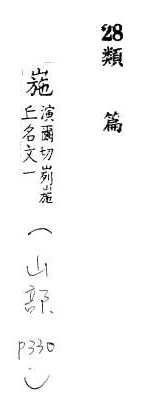 28 類篇
「崺」演爾切峛崺
丘名文一
(山部 p330.)